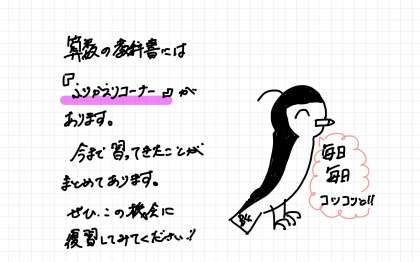 算数の教科書には
『ふりかえりコーナー』が
あります。
今まで習ってきたことが
まとめてあります。
ぜひ、この機会に
復習してみてください!!
毎日
毎日
コツコツと!!